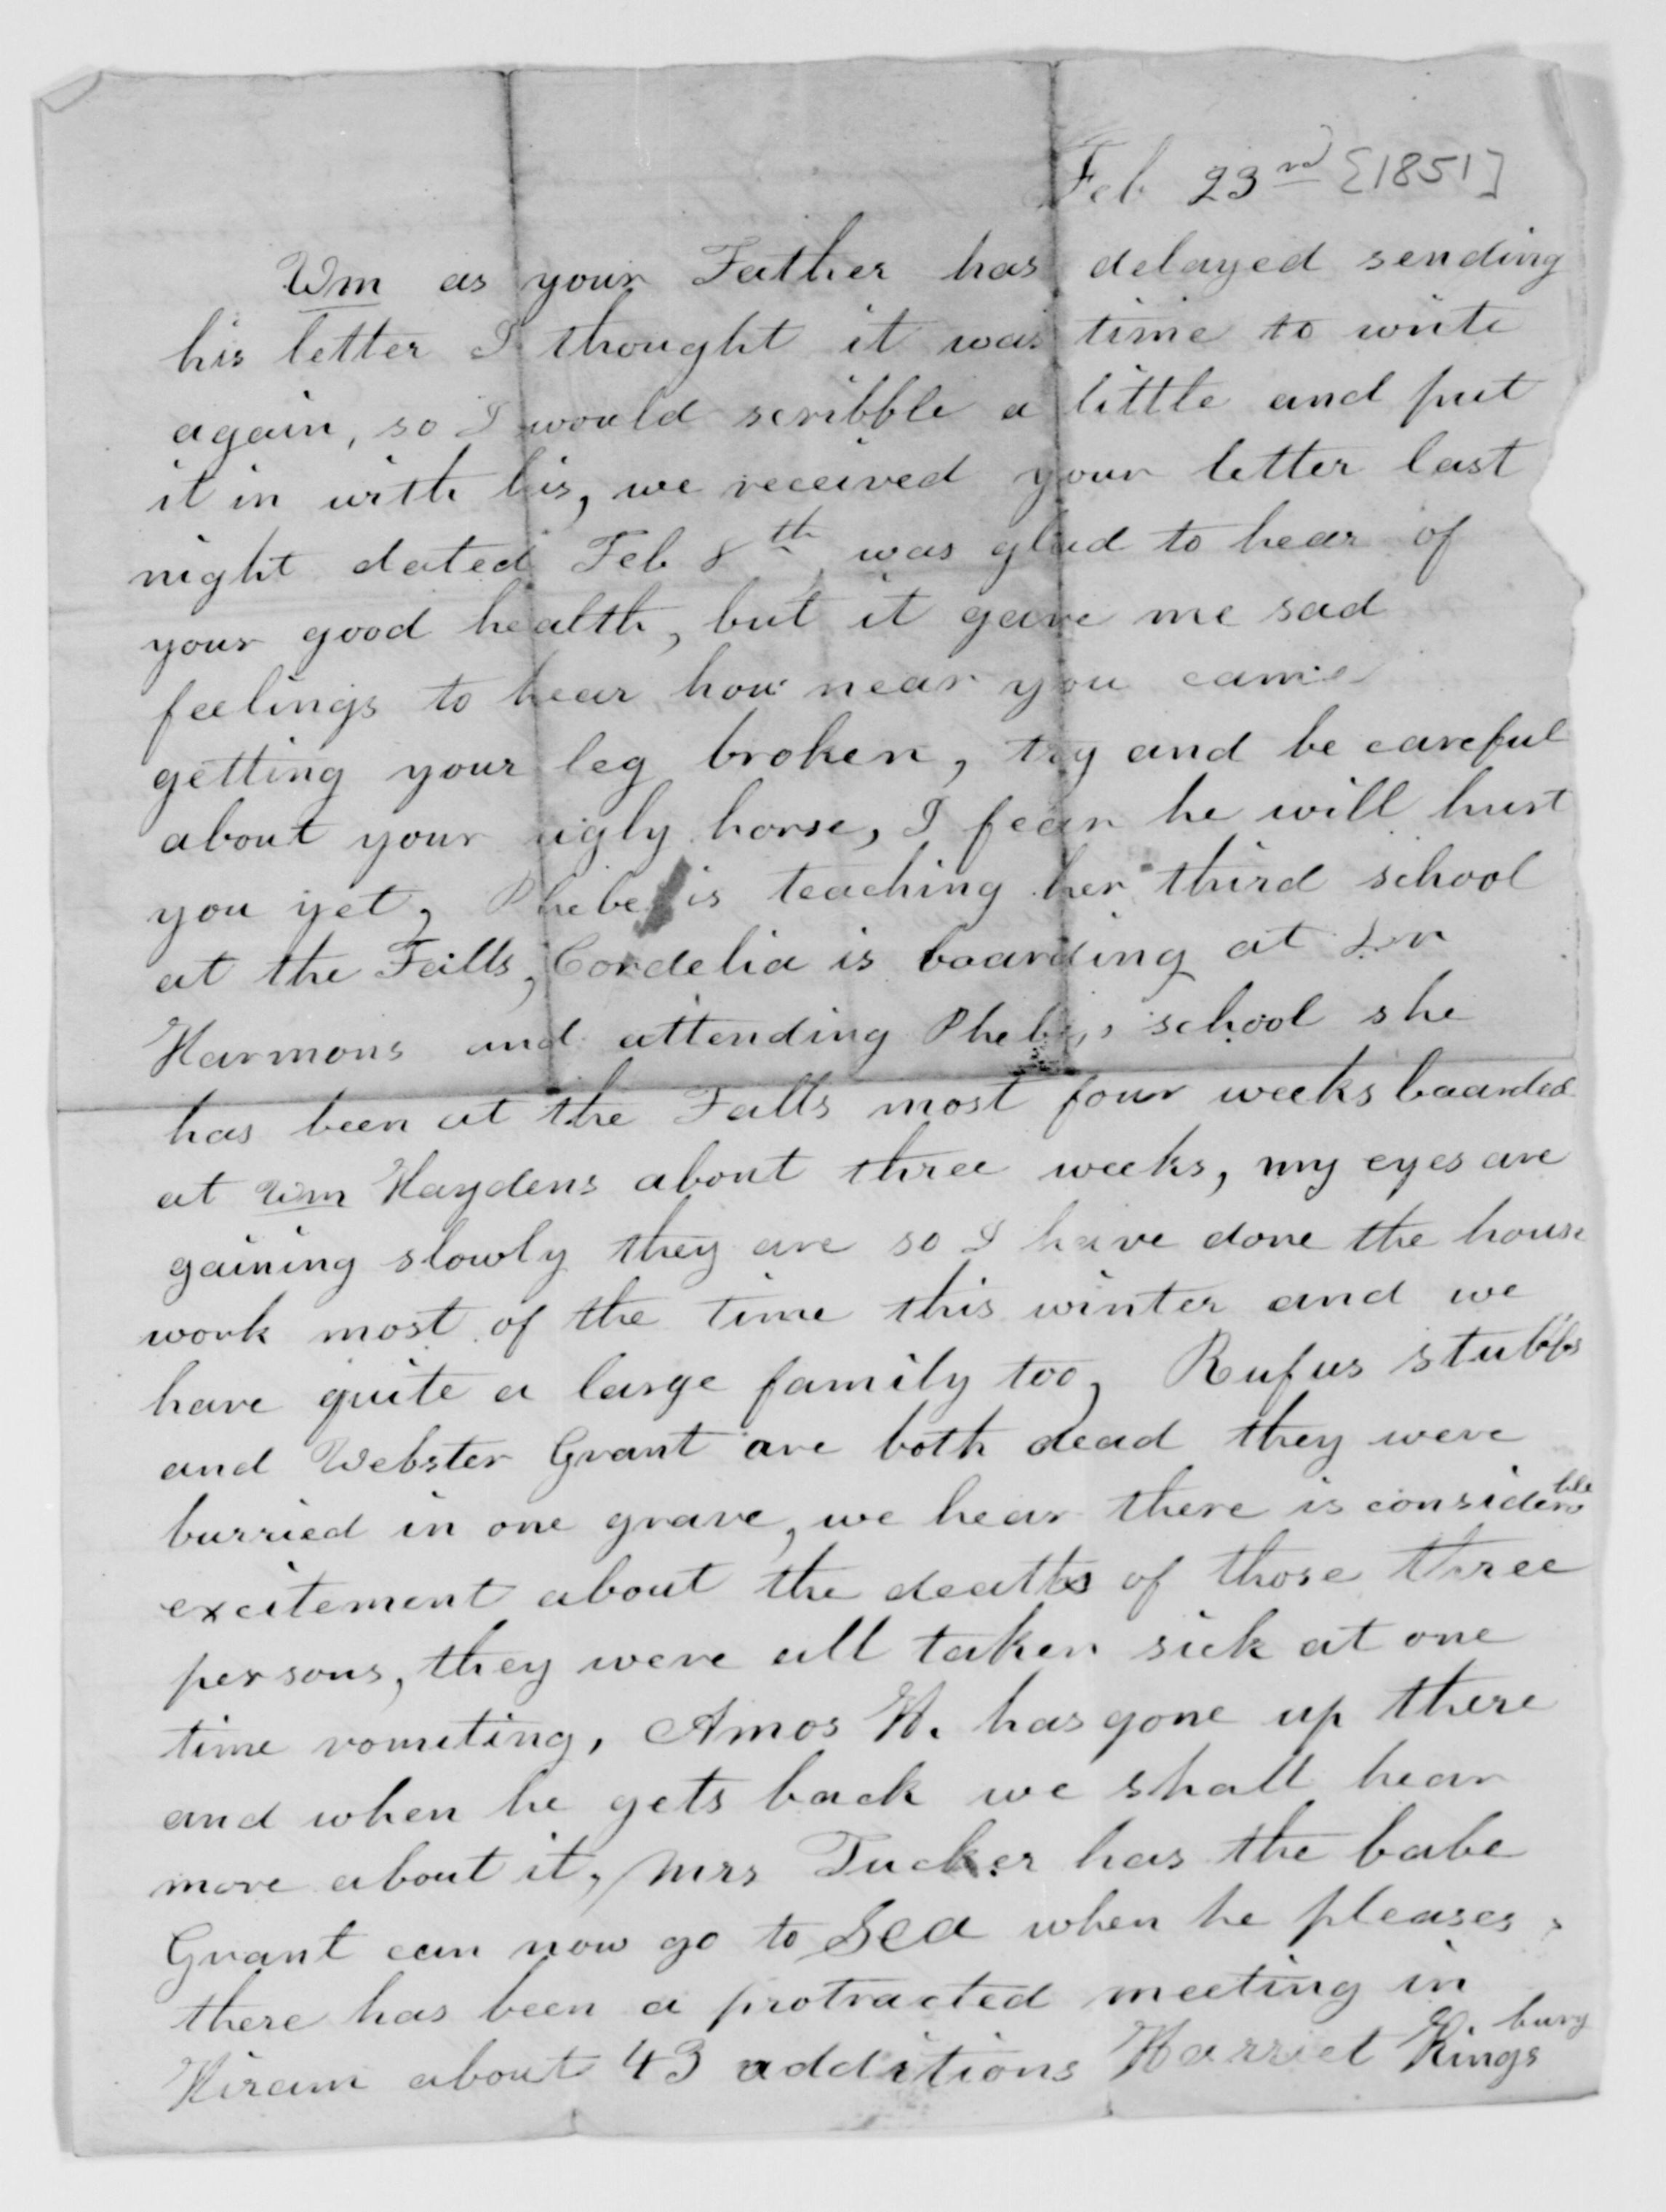 Feb 23rd [1851]
Wm as your Father has delayed sending
his letter I thought it was time to write
again, so I would scribble a little and put
it in with his, we received your letter last
night dated Feb 8th, was glad to hear of
your good health, but it gave me sad
feelings to hear how near you came
getting your leg broken, try and be careful
about your ugly horse, I fear he will hurt
you yet, Phebe is teaching her third school
at the Falls, Cordelia is boarding at Dr
Harmons and attending Phebe,s school she
has been at the Falls most four weeks boarded
at Wm Haydens about three weeks, my eyes are
gaining slowly they are so I have done the house
work most of the time this winter and we
have quite a large family too, Rufus stubbs
and Webster Grant are both dead they were
burried in one grave, we hear there is considerble
excitement about the deaths of those three
persons, they were all taken sick at one
time vomiting, Amos H. has gone up there
and when he gets back we shall hear
more about it, Mrs Tucker has the babe
Grant can now go to Sea when he pleases,
there has been a protracted meeting in
Hiram about 43 additions Harriet Kingsbury